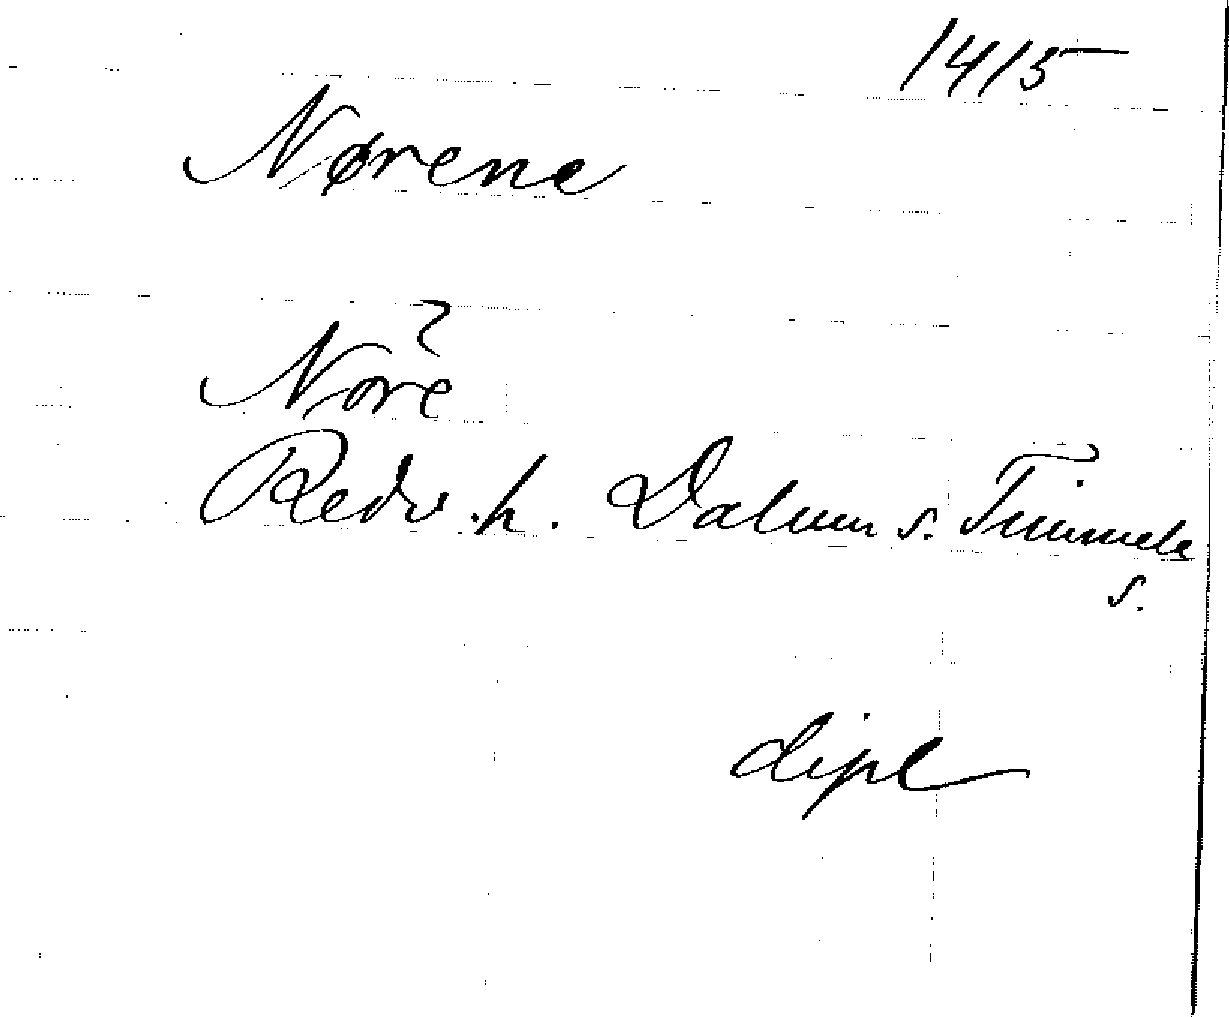 1415
Nørene
?
Nore
Redv. h. Dalum s. Timmele
s.
dipl